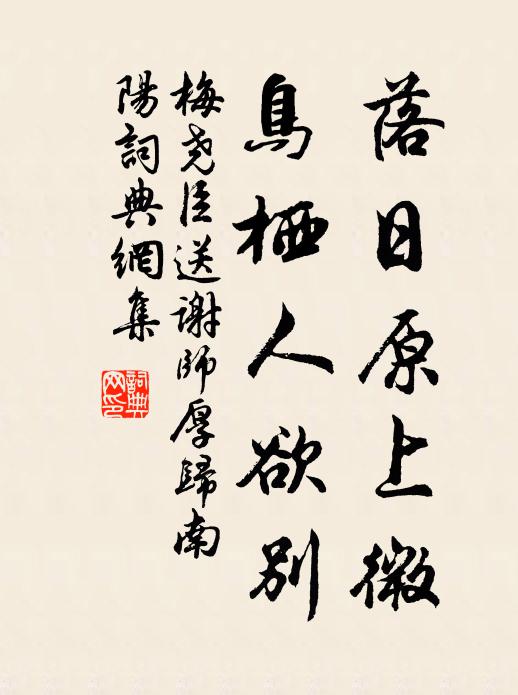 落日原上微
鳥栖人欲別
梅尧臣送謝師厚歸南
陽詞典網集
詞典
网印